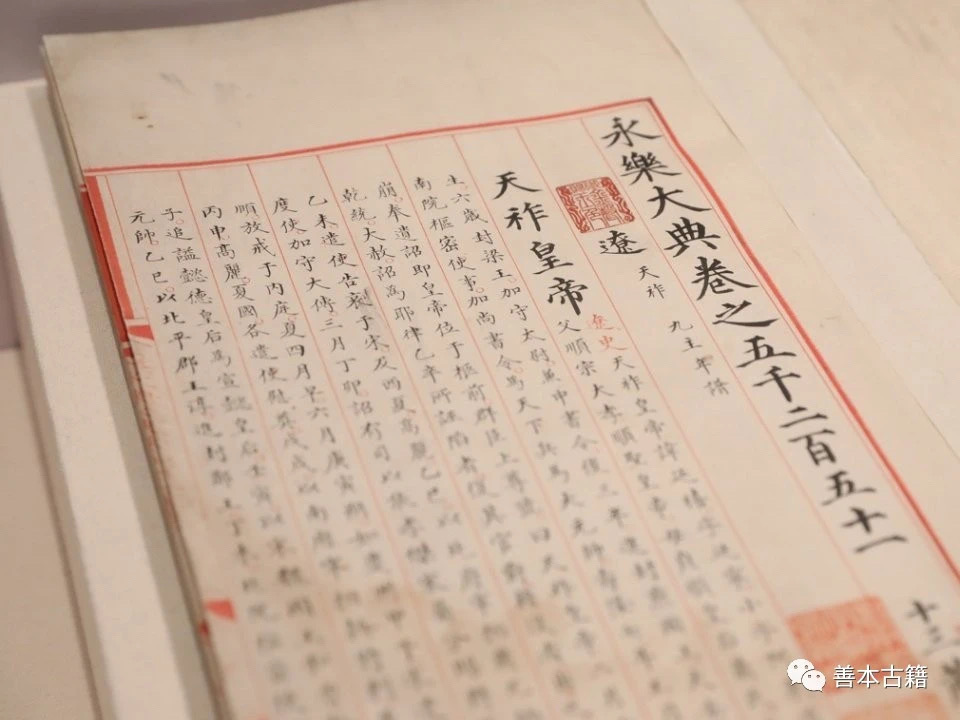 永樂大典卷之五千二百五十一
十三
遼 天祚 九主年譜
天祚皇帝
遼史天祚皇帝諱延禧字延寧小字
父順宗大孝順聖皇帝母貞順皇后蕭
生六歲封梁王加守太尉兼中書令後三年進封燕國王
南院樞密使事加尚書令為天下兵馬大元帥壽隆七年
崩奉遺詔即皇帝位于柩前群臣上尊號曰天祚皇帝
乾統大赦詔為耶律乙辛所誣陷者復其官爵籍沒
乙未遣使告哀于宋及西夏高麗乙巳以北府宰相
度使加守大傅三月丁卯詔有司以張孝傑家屬分賜
順放戒于內庭夏四月旱六月庚寅朔如慶州甲午宋
丙申高麗夏國各遣使慰奠戊戌以南府宰相斡特
子追諡懿德皇后為宣懿皇后壬寅以宋魏國王和
元帥乙巳以北平郡王淳進封鄭王丁未北院樞密
善本古籍